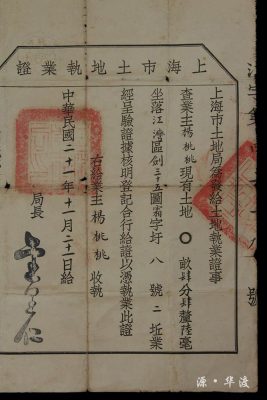 上海市土地執業證
上海市土地局為發給土地執業證事
查業主楊桃桃現有土地〇畝肆分肆釐陸毫
坐落江灣區劍三十五圖字圩八號二坵業
經呈驗證據核明登記合行給證以憑執業此證
右給業主楊桃桃收執
中華民國二十一年十一月二十一日給
局長
號
源·华渡